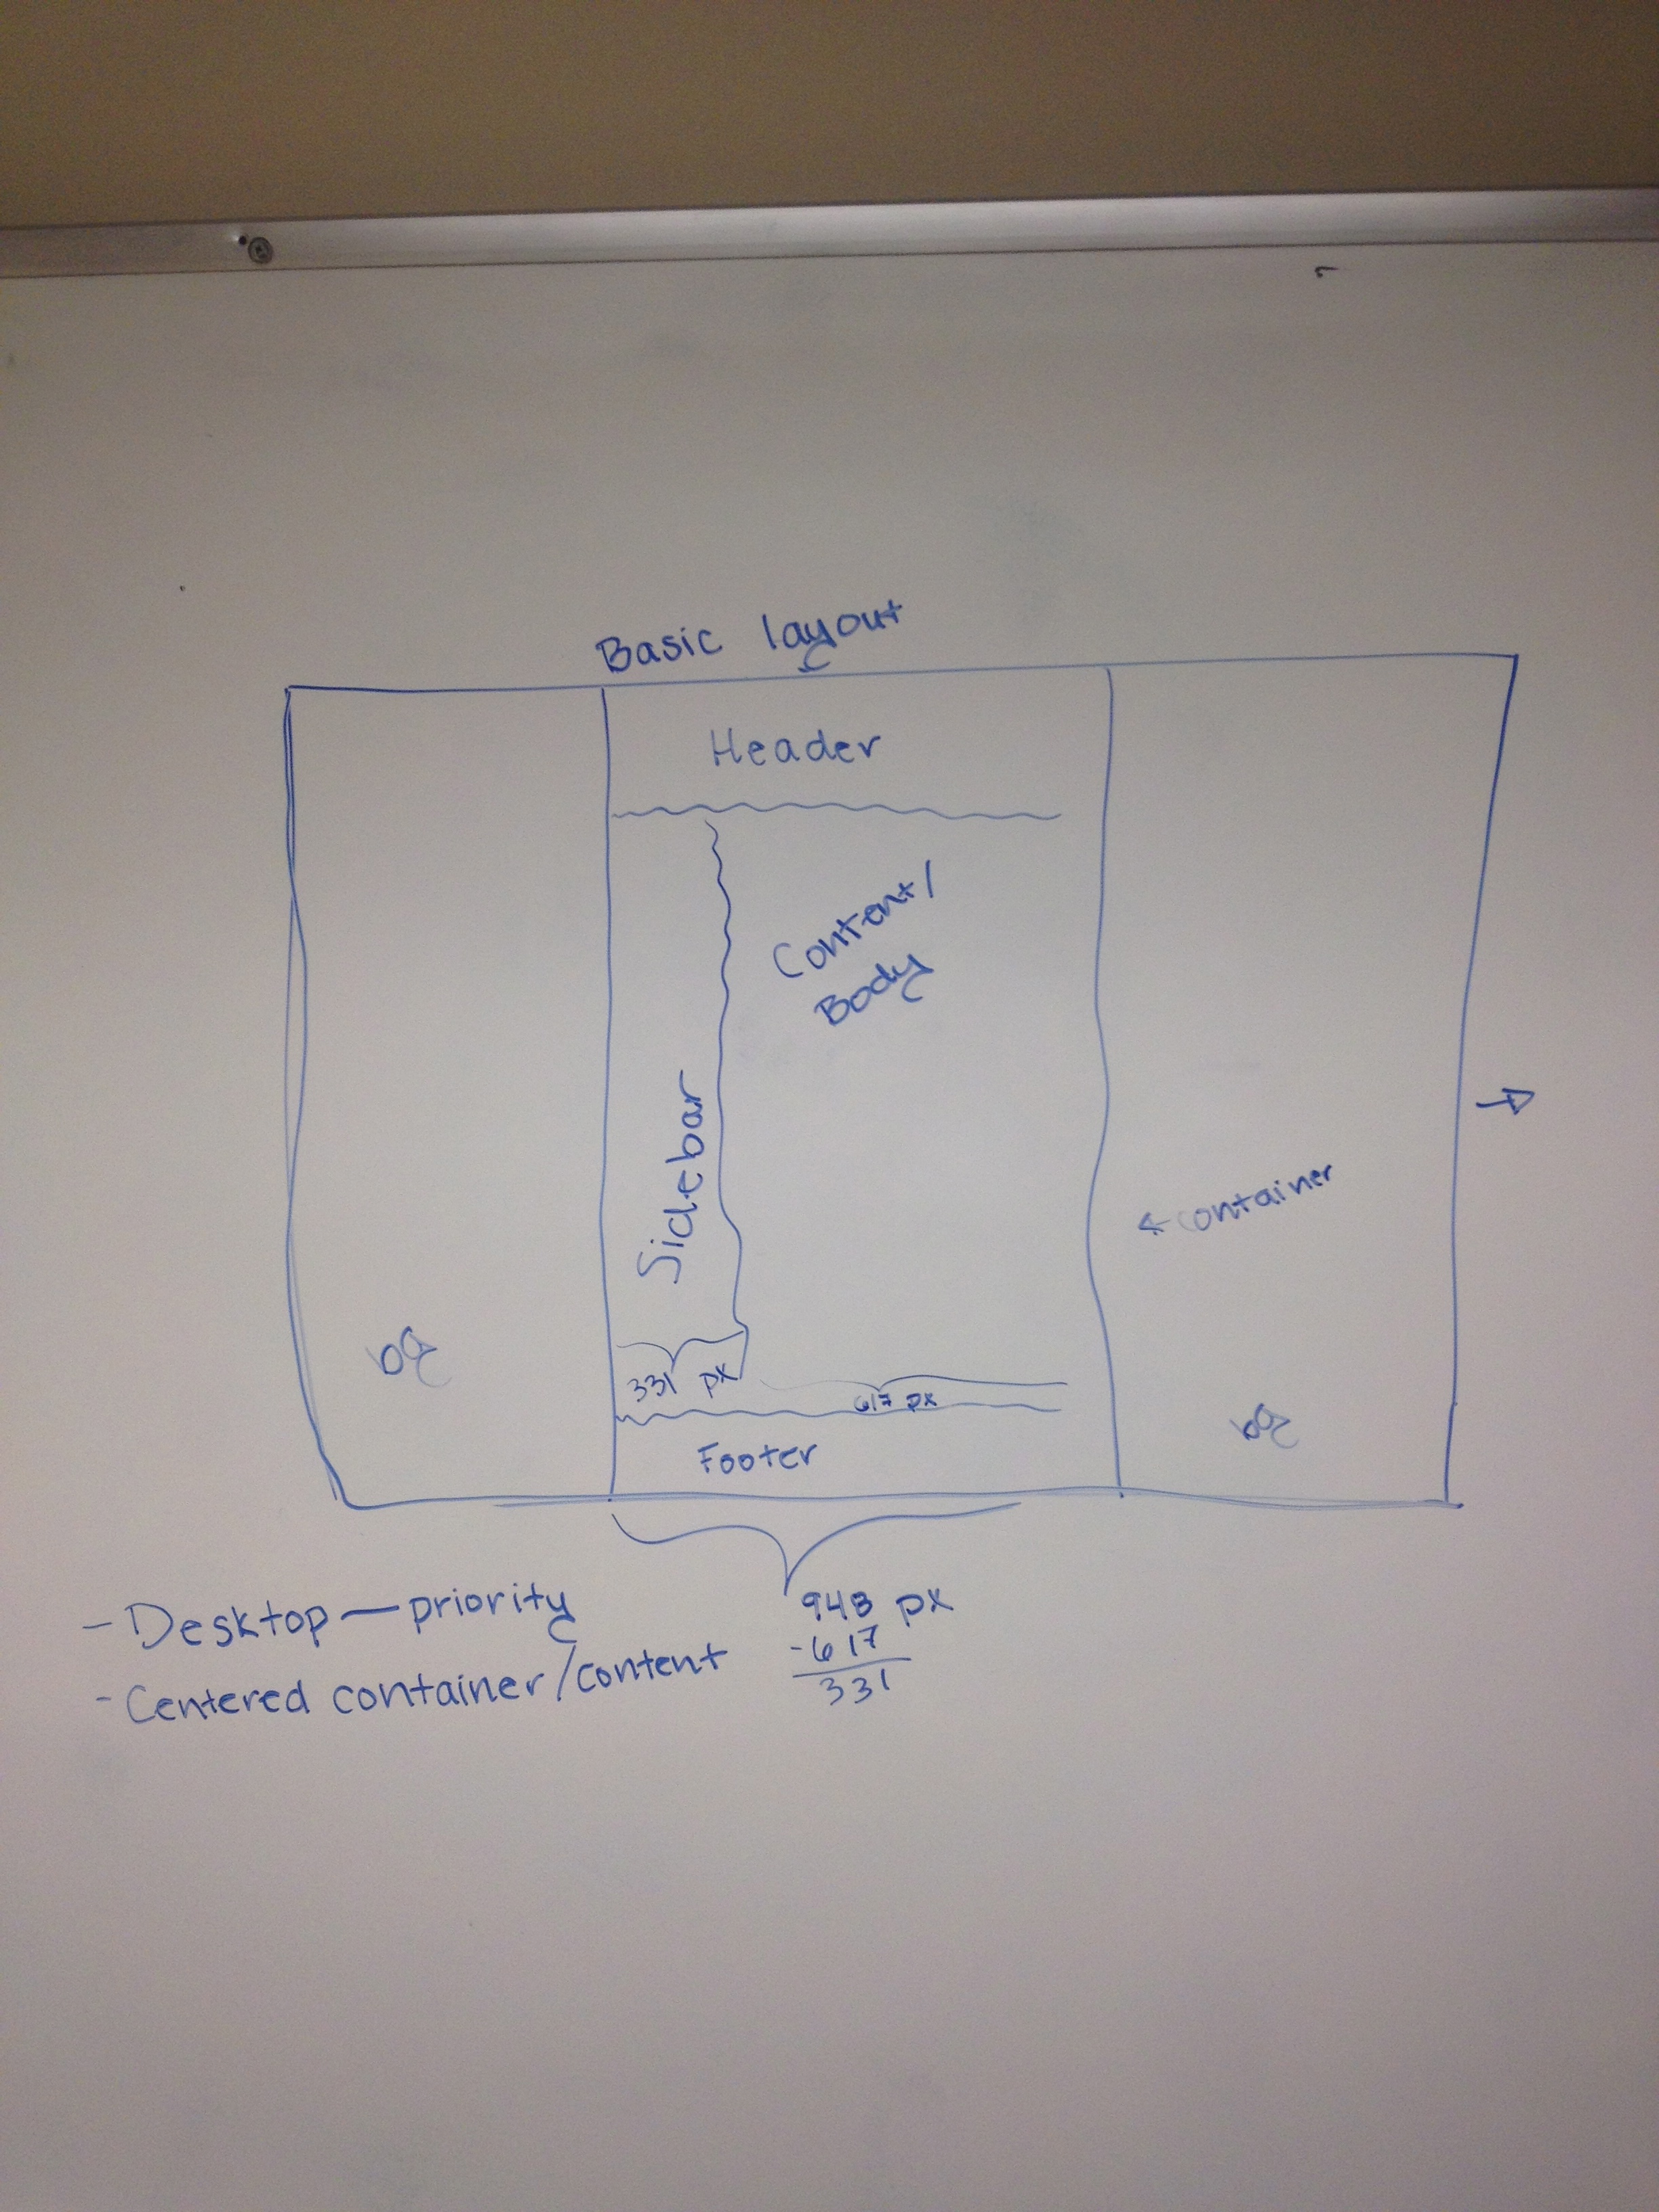 Basic layout
Header
Content/
Body
Sidebar
← container
bg
bg
331 px
617 px
Footer
- Desktop — priority
- Centered container/content
948 px
-617
331